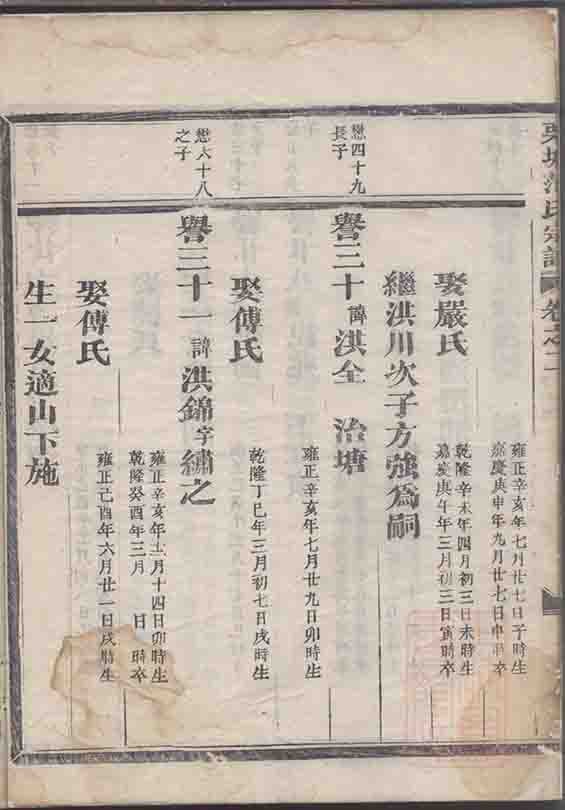 宗譜 卷之二
雍正辛亥年七月廿七日子時生
嘉慶庚申年九月廿七日申時卒
娶嚴氏
乾隆辛未年四月初三日未時生
嘉慶庚午年三月初三日寅時卒
繼洪川次子方強為嗣
懋四十九
長子
譽三十 諱洪全 治塘
雍正辛亥年七月廿九日卯時生
娶傅氏
乾隆丁巳年三月初七日戌時生
懋六十八
之子
譽三十一 諱洪錦 字繡之
雍正辛亥年十一月十四日卯時生
乾隆癸酉年三月 日 時卒
娶傅氏
雍正己酉年六月廿一日戌時生
生一女適山下施